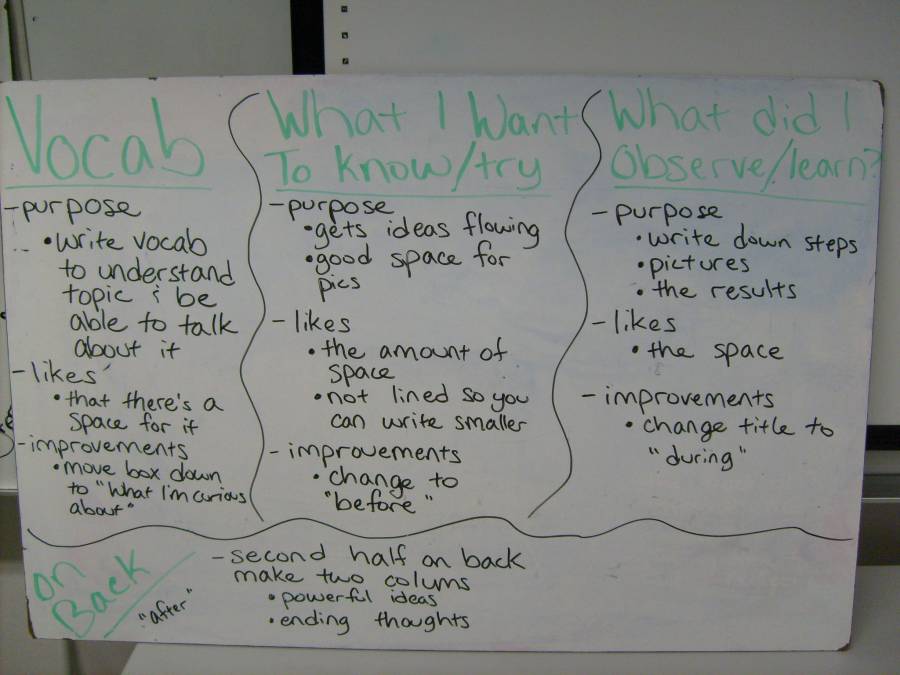 Vocab
-purpose
•write vocab
to understand
topic & be
able to talk
about it
-likes
•that there's a
space for it
-improvements
•move box down
to "What I'm curious
about"
What I Want
To know/try
-purpose
•gets ideas flowing
•good space for
pics
-likes
•the amount of
space
•not lined so you
can write smaller
-improvements
•change to
"before"
What did I
Observe/learn?
-purpose
•write down steps
•pictures
•the results
-likes
•the space
-improvements
•change title to
"during"
On
Back
"after"
-second half on back
make two colums
•powerful ideas
•ending thoughts